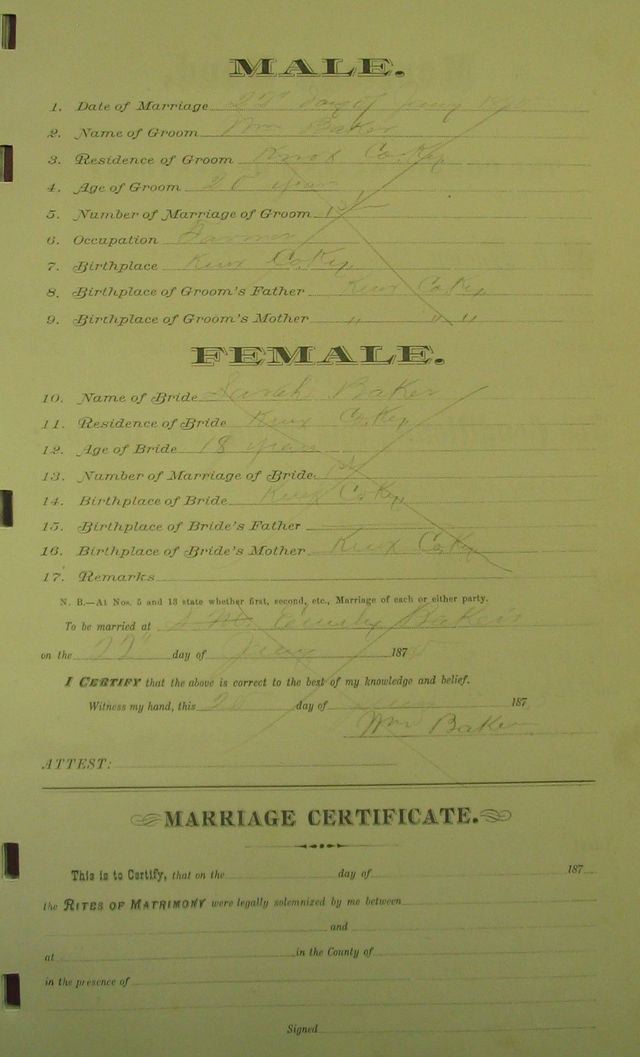 MALE.
1. Date of Marriage 22" day of Jany
2. Name of Groom Wm Baker
3. Residence of Groom Knox Co. Ky
4. Age of Groom years
5. Number of Marriage of Groom 1st
6. Occupation Farmer
7. Birthplace Knox Co. Ky
8. Birthplace of Groom's Father Knox Co Ky
9. Birthplace of Groom's Mother " " "
FEMALE.
10. Name of Bride Sarah Baker
11. Residence of Bride Knox Co. Ky
12. Age of Bride 18 years
13. Number of Marriage of Bride. 1st
14. Birthplace of Bride Knox Co Ky
15. Birthplace of Bride's Father
16. Birthplace of Bride's Mother Knox Co. Ky
17. Remarks
N. B.—At Nos. 5 and 13 state whether first, second, etc., Marriage of each or either party.
To be married at Baker's
on the 22" day of Jany 187
I CERTIFY that the above is correct to the best of my knowledge and belief.
Witness my hand, this day of 187
Wm Baker
ATTEST:
MARRIAGE CERTIFICATE.
This is to Certify, that on the day of 187
the RITES OF MATRIMONY were legally solemnized by me between
and
at in the County of
in the presence of
Signed